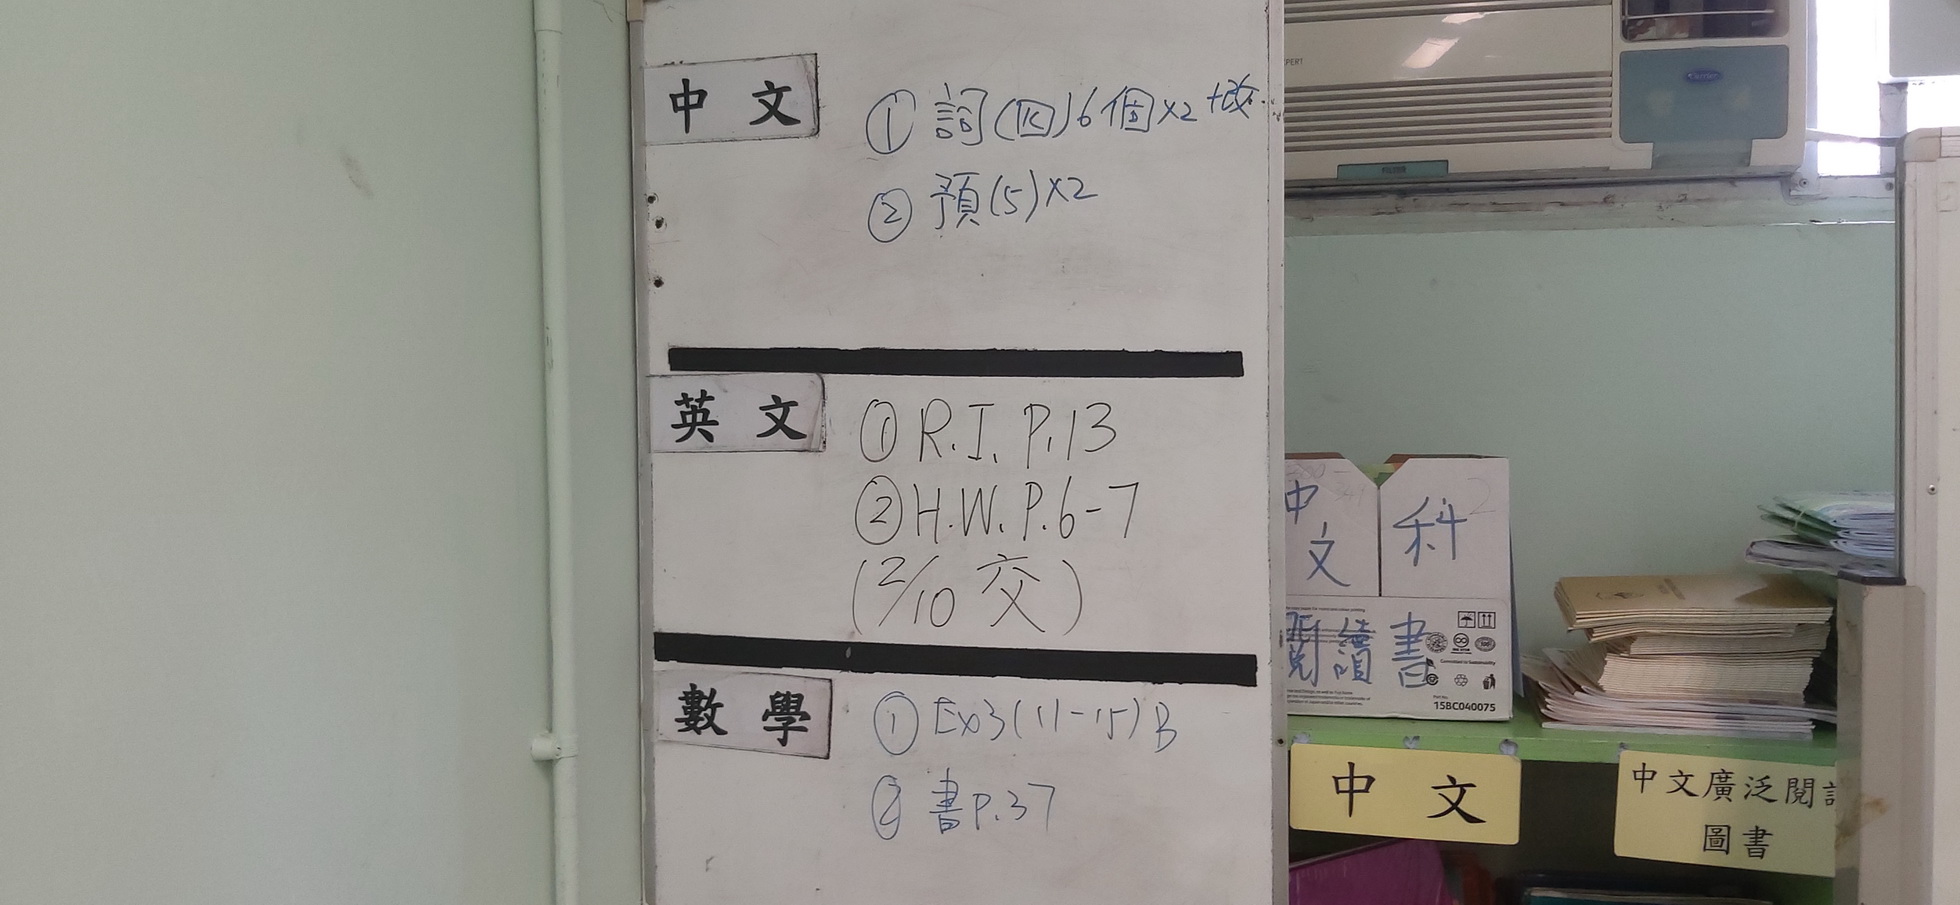 中 文
① 詞(四)6個×2+改.
② 預(5)×2
英 文
① R.I. P.13
② H.W. P.6-7
(2/10 交)
數 學
① Ex3(11-15)B
② 書P.37
Carrier
中文
科
閱讀書
15BC040075
中 文
中文廣泛閱
圖書